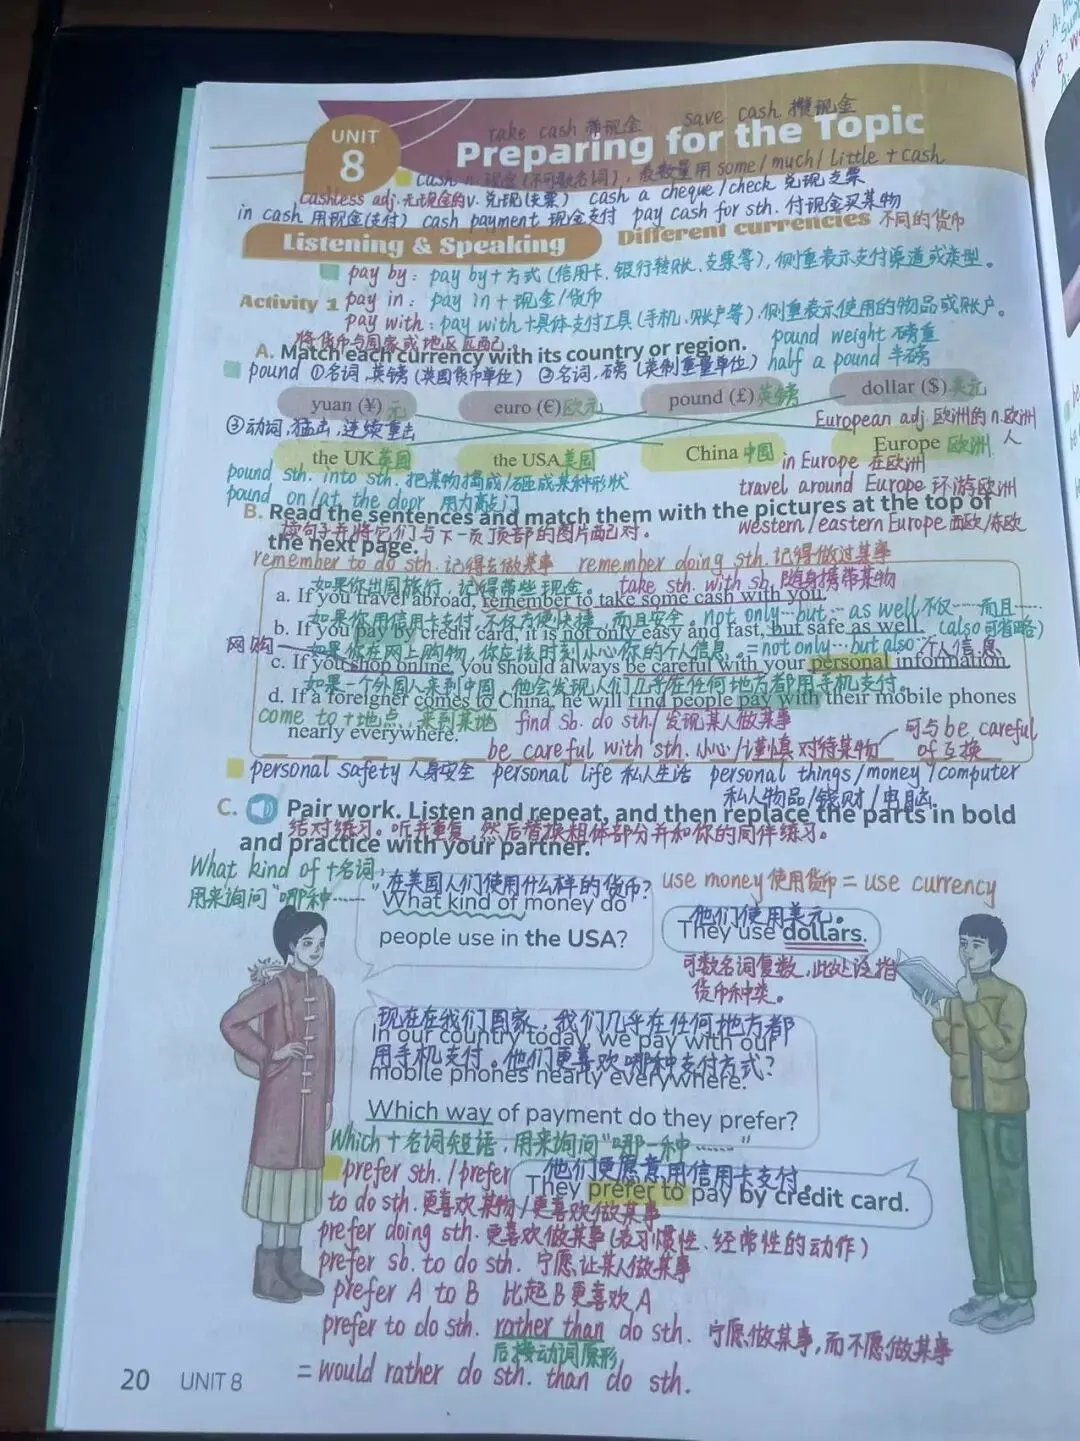 take cash 带现金 save cash 攒现金
UNIT 8
Preparing for the Topic
cash n. 现金(不可数名词), 表数量用 some/much/little + cash
cashless adj. 无现金的 v. 兑现(支票) cash a cheque/check 兑现支票
in cash 用现金(支付) cash payment 现金支付 pay cash for sth. 付现金买某物
Listening & Speaking
Different currencies 不同的货币
pay by: pay by+方式(信用卡、银行转账、支票等), 侧重表示支付渠道或类型。
Activity 1
pay in: pay in+现金/货币
pay with: pay with+具体支付工具(手机、账户等), 侧重表示使用的物品或账户。
将货币与国家或地区匹配
pound weight 磅重
A. Match each currency with its country or region.
half a pound 半磅
pound ①名词, 英镑(英国货币单位) ②名词, 磅(英制重量单位)
yuan (¥) 元
euro (€) 欧元
pound (£) 英镑
dollar ($) 美元
③动词, 猛击, 连续重击
European adj. 欧洲的 n. 欧洲人
the UK 英国
the USA 美国
China 中国
Europe 欧洲
in Europe 在欧洲
pound sth. into sth. 把某物捣成/砸成某种形状
travel around Europe 环游欧洲
pound on/at the door 用力敲门
western/eastern Europe 西欧/东欧
B. Read the sentences and match them with the pictures at the top of
读句子并将它们与下一页顶部的图片配对。
the next page.
remember to do sth. 记得去做某事 remember doing sth. 记得做过某事
如果你出国旅行, 记得带些现金。 take sth. with sb. 随身携带某物
a. If you travel abroad, remember to take some cash with you.
如果你用信用卡支付, 不仅方便快捷, 而且安全。 not only…but…as well 不仅……而且……
b. If you pay by credit card, it is not only easy and fast, but safe as well.
(also可省略)
网购
如果你在网上购物, 你应该时刻小心你的个人信息。 =not only…but also 个人信息
c. If you shop online, you should always be careful with your personal information.
如果一个外国人来到中国, 他会发现人们几乎在任何地方都用手机支付。
d. If a foreigner comes to China, he will find people pay with their mobile phones
nearly everywhere.
come to+地点, 来到某地 find sb. do sth. 发现某人做某事
be careful with sth. 小心/谨慎对待某物
可与be careful of互换
personal safety 人身安全 personal life 私人生活 personal things/money/computer
私人物品/钱财/电脑
C. Pair work. Listen and repeat, and then replace the parts in bold
结对练习。听并重复, 然后替换粗体部分并和你的同伴练习。
and practice with your partner.
What kind of+名词,
用来询问"哪种……"
在美国人们使用什么样的货币?
use money 使用货币 = use currency
What kind of money do
people use in the USA?
他们使用美元。
They use dollars.
可数名词复数, 此处泛指
货币种类。
现在在我们国家, 我们几乎在任何地方都
In our country today, we pay with our
用手机支付。他们更喜欢哪种支付方式?
mobile phones nearly everywhere.
Which way of payment do they prefer?
Which+名词短语, 用来询问"哪一种……"
他们更愿意用信用卡支付。
They prefer to pay by credit card.
prefer sth./prefer
to do sth. 更喜欢某物/更喜欢做某事
prefer doing sth. 更喜欢做某事(表习惯性、经常性的动作)
prefer sb. to do sth. 宁愿让某人做某事
prefer A to B 比起B更喜欢A
prefer to do sth. rather than do sth. 宁愿做某事, 而不愿做某事
后接动词原形
= would rather do sth. than do sth.
20 UNIT 8